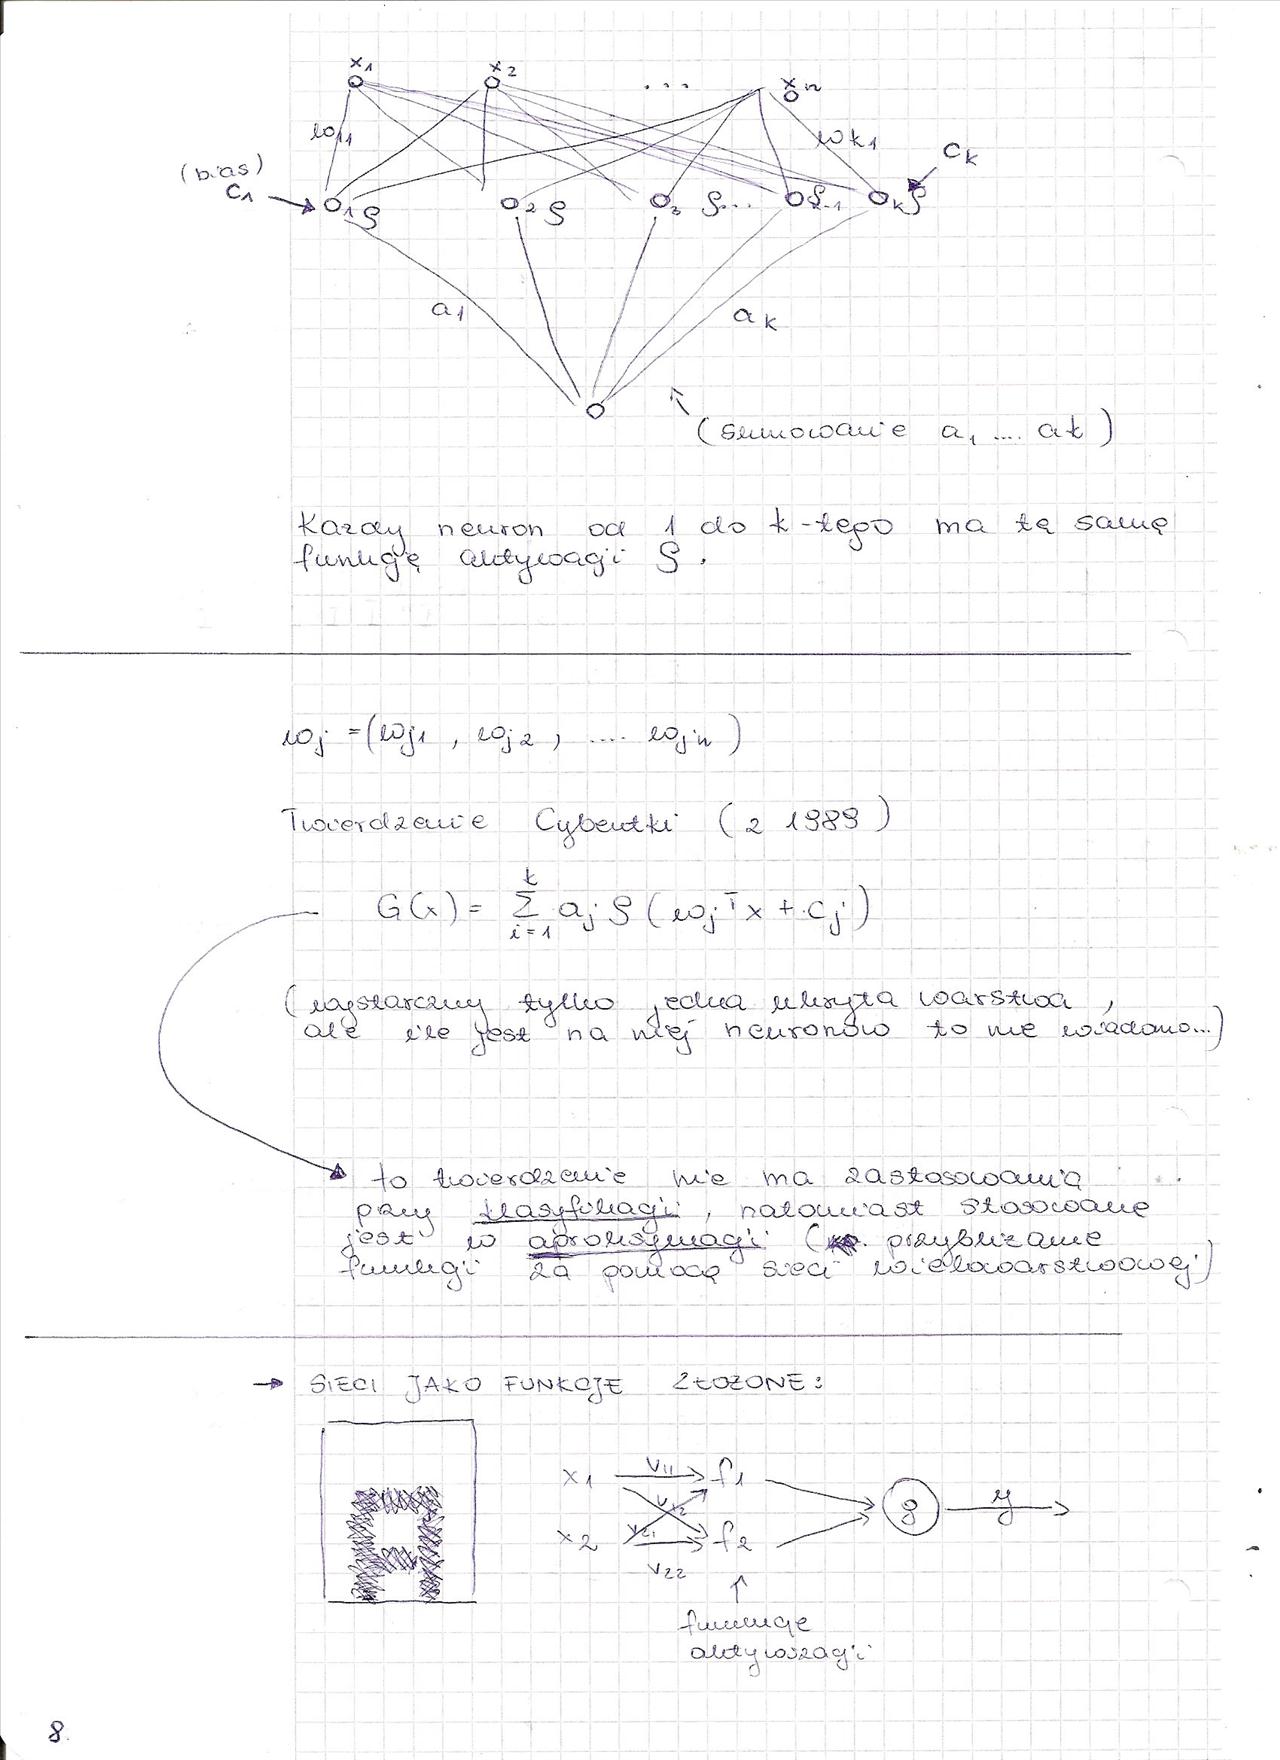 x1 x2 ... xn
w11 wk1
(bias)
c1 ck
1 ρ 2 ρ 3 ρ... k-1 k ρ
a1 ak
(sumowanie a1 .... ak)
Każdy neuron od 1 do k-tego ma tą samą
funkcję aktywacji ρ.
wj = (wj1, wj2, .... wjn)
Twierdzenie Cybentki (z 1989)
k
G(x) = Σ aj ρ (wjᵀx + cj)
i=1
(wystarczy tylko jedna ukryta warstwa,
ale ile jest na niej neuronów to nie wiadomo...)
to twierdzenie nie ma zastosowania
przy klasyfikacji, natomiast stosowane
jest w aproksymacji ( przybliżanie
funkcji za pomocą sieci wielowarstwowej)
→ SIECI JAKO FUNKCJE ZŁOŻONE:
x1 v11 f1
v12 g y
x2 v21 f2
v22
funkcje
aktywacji
8.